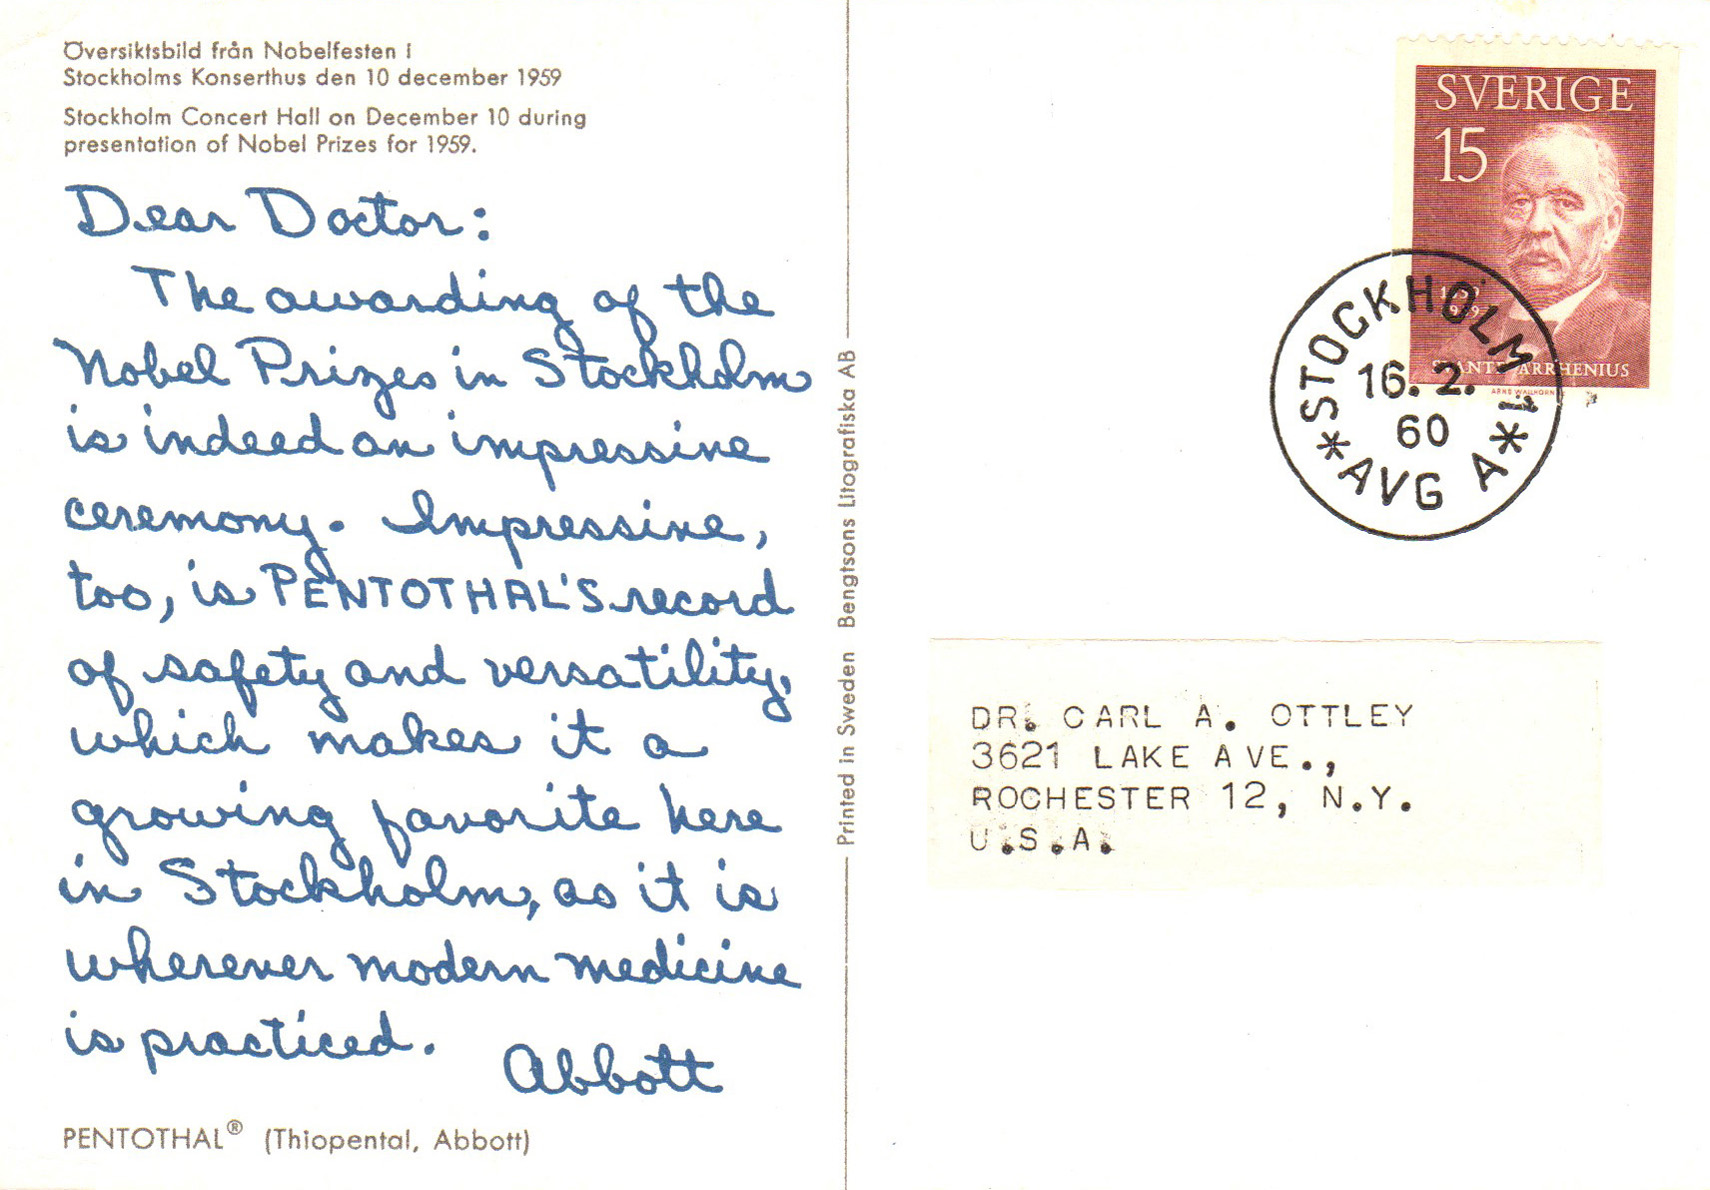 Översiktsbild från Nobelfesten i
Stockholms Konserthus den 10 december 1959
Stockholm Concert Hall on December 10 during
presentation of Nobel Prizes for 1959.
Dear Doctor:
The awarding of the
Nobel Prizes in Stockholm
is indeed an impressive
ceremony. Impressive,
too, is PENTOTHAL'S record
of safety and versatility,
which makes it a
growing favorite here
in Stockholm, as it is
wherever modern medicine
is practiced.
Abbott
PENTOTHAL® (Thiopental, Abbott)
Printed in Sweden Bengtsons Litografiska AB
SVERIGE
15
1859
1959
SVANTE ARRHENIUS
ARNE WALLHORN
STOCKHOLM 1
16. 2.
60
* AVG A *
DR. CARL A. OTTLEY
3621 LAKE AVE.,
ROCHESTER 12, N.Y.
U.S.A.